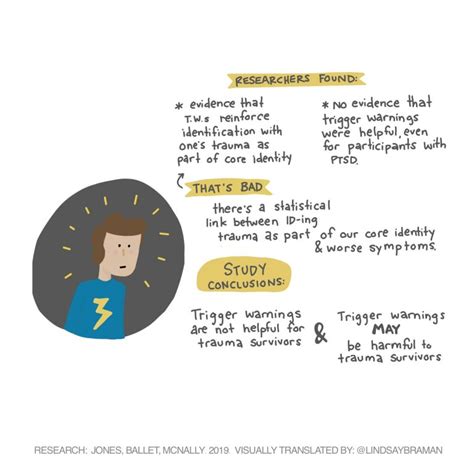 RESEARCHERS FOUND:
* evidence that
T.W.s reinforce
identification with
one's trauma as
part of core identity
* NO evidence that
trigger warnings
were helpful, even
for participants with
PTSD.
THAT'S BAD
there's a statistical
link between ID-ing
trauma as part of our core identity
& worse symptoms.
STUDY
CONCLUSIONS:
Trigger warnings
are not helpful for
trauma survivors
&
Trigger warnings
MAY
be harmful to
trauma survivors
RESEARCH: JONES, BALLET, MCNALLY. 2019. VISUALLY TRANSLATED BY: @LINDSAYBRAMAN